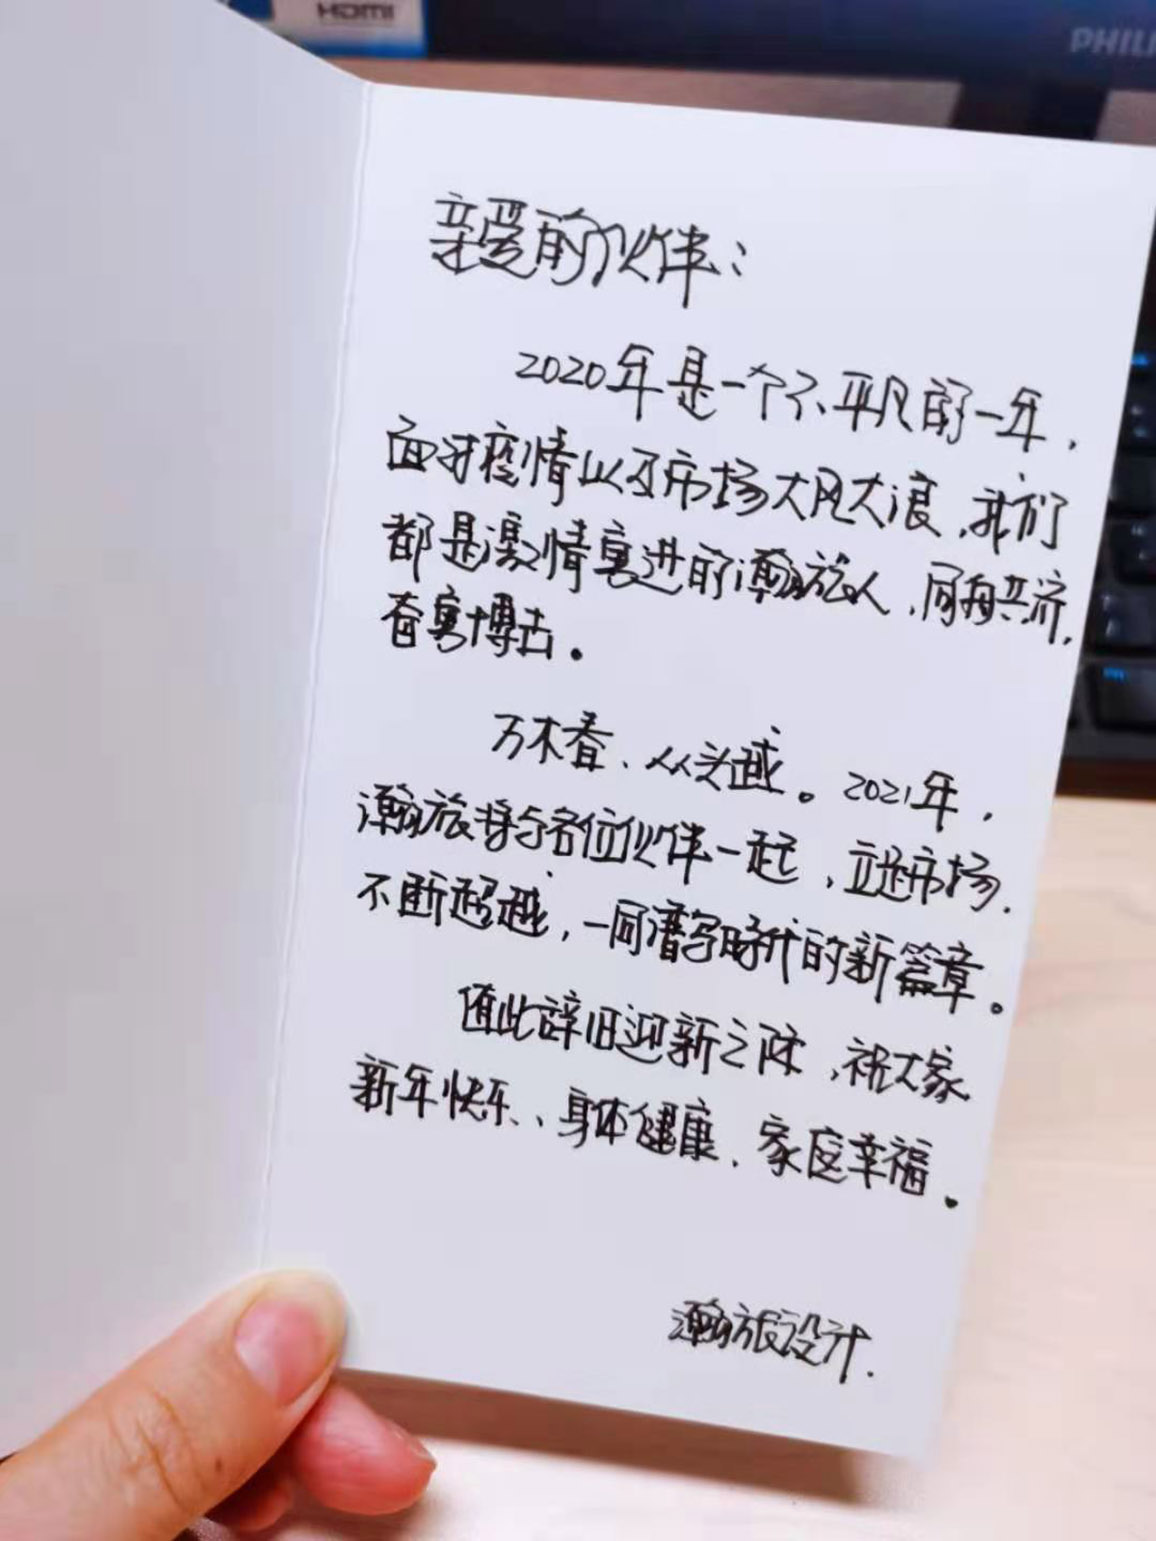 HDMI
PHILI
亲爱的伙伴：
2020年是一个不平凡的一年，
面对疫情以及市场大风大浪，我们
都是激情奋进的瀚旅人，同舟共济，
奋勇搏击。
万木春、从头越。2021年，
瀚旅将与各位伙伴一起，立足市场，
不断超越，一同谱写时代的新篇章。
值此辞旧迎新之际，祝大家
新年快乐、身体健康、家庭幸福。
瀚旅设计.